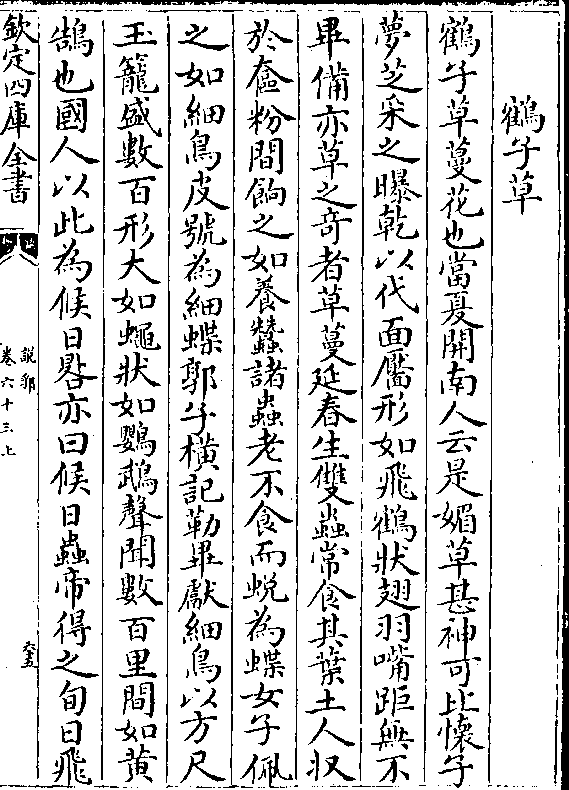 鶴子草
鶴子草蔓花也當夏開南人云是媚草甚神可比懷子
夢芝采之曝乾以代面靨形如飛鶴狀翅羽嘴距無不
畢備亦草之竒者草蔓延春生雙蟲常食其葉土人収
於奩粉間飼之如養蠶諸蟲老不食而蛻為蝶女子佩
之如細鳥皮號為細蝶郭子橫記勒畢獻細鳥以方尺
玉籠盛數百形大如蠅狀如鸚鵡聲聞數百里間如黄
鵠也國人以此為候日晷亦曰候日蟲帝得之旬日飛
欽定四庫全書
說郛
卷六十三上